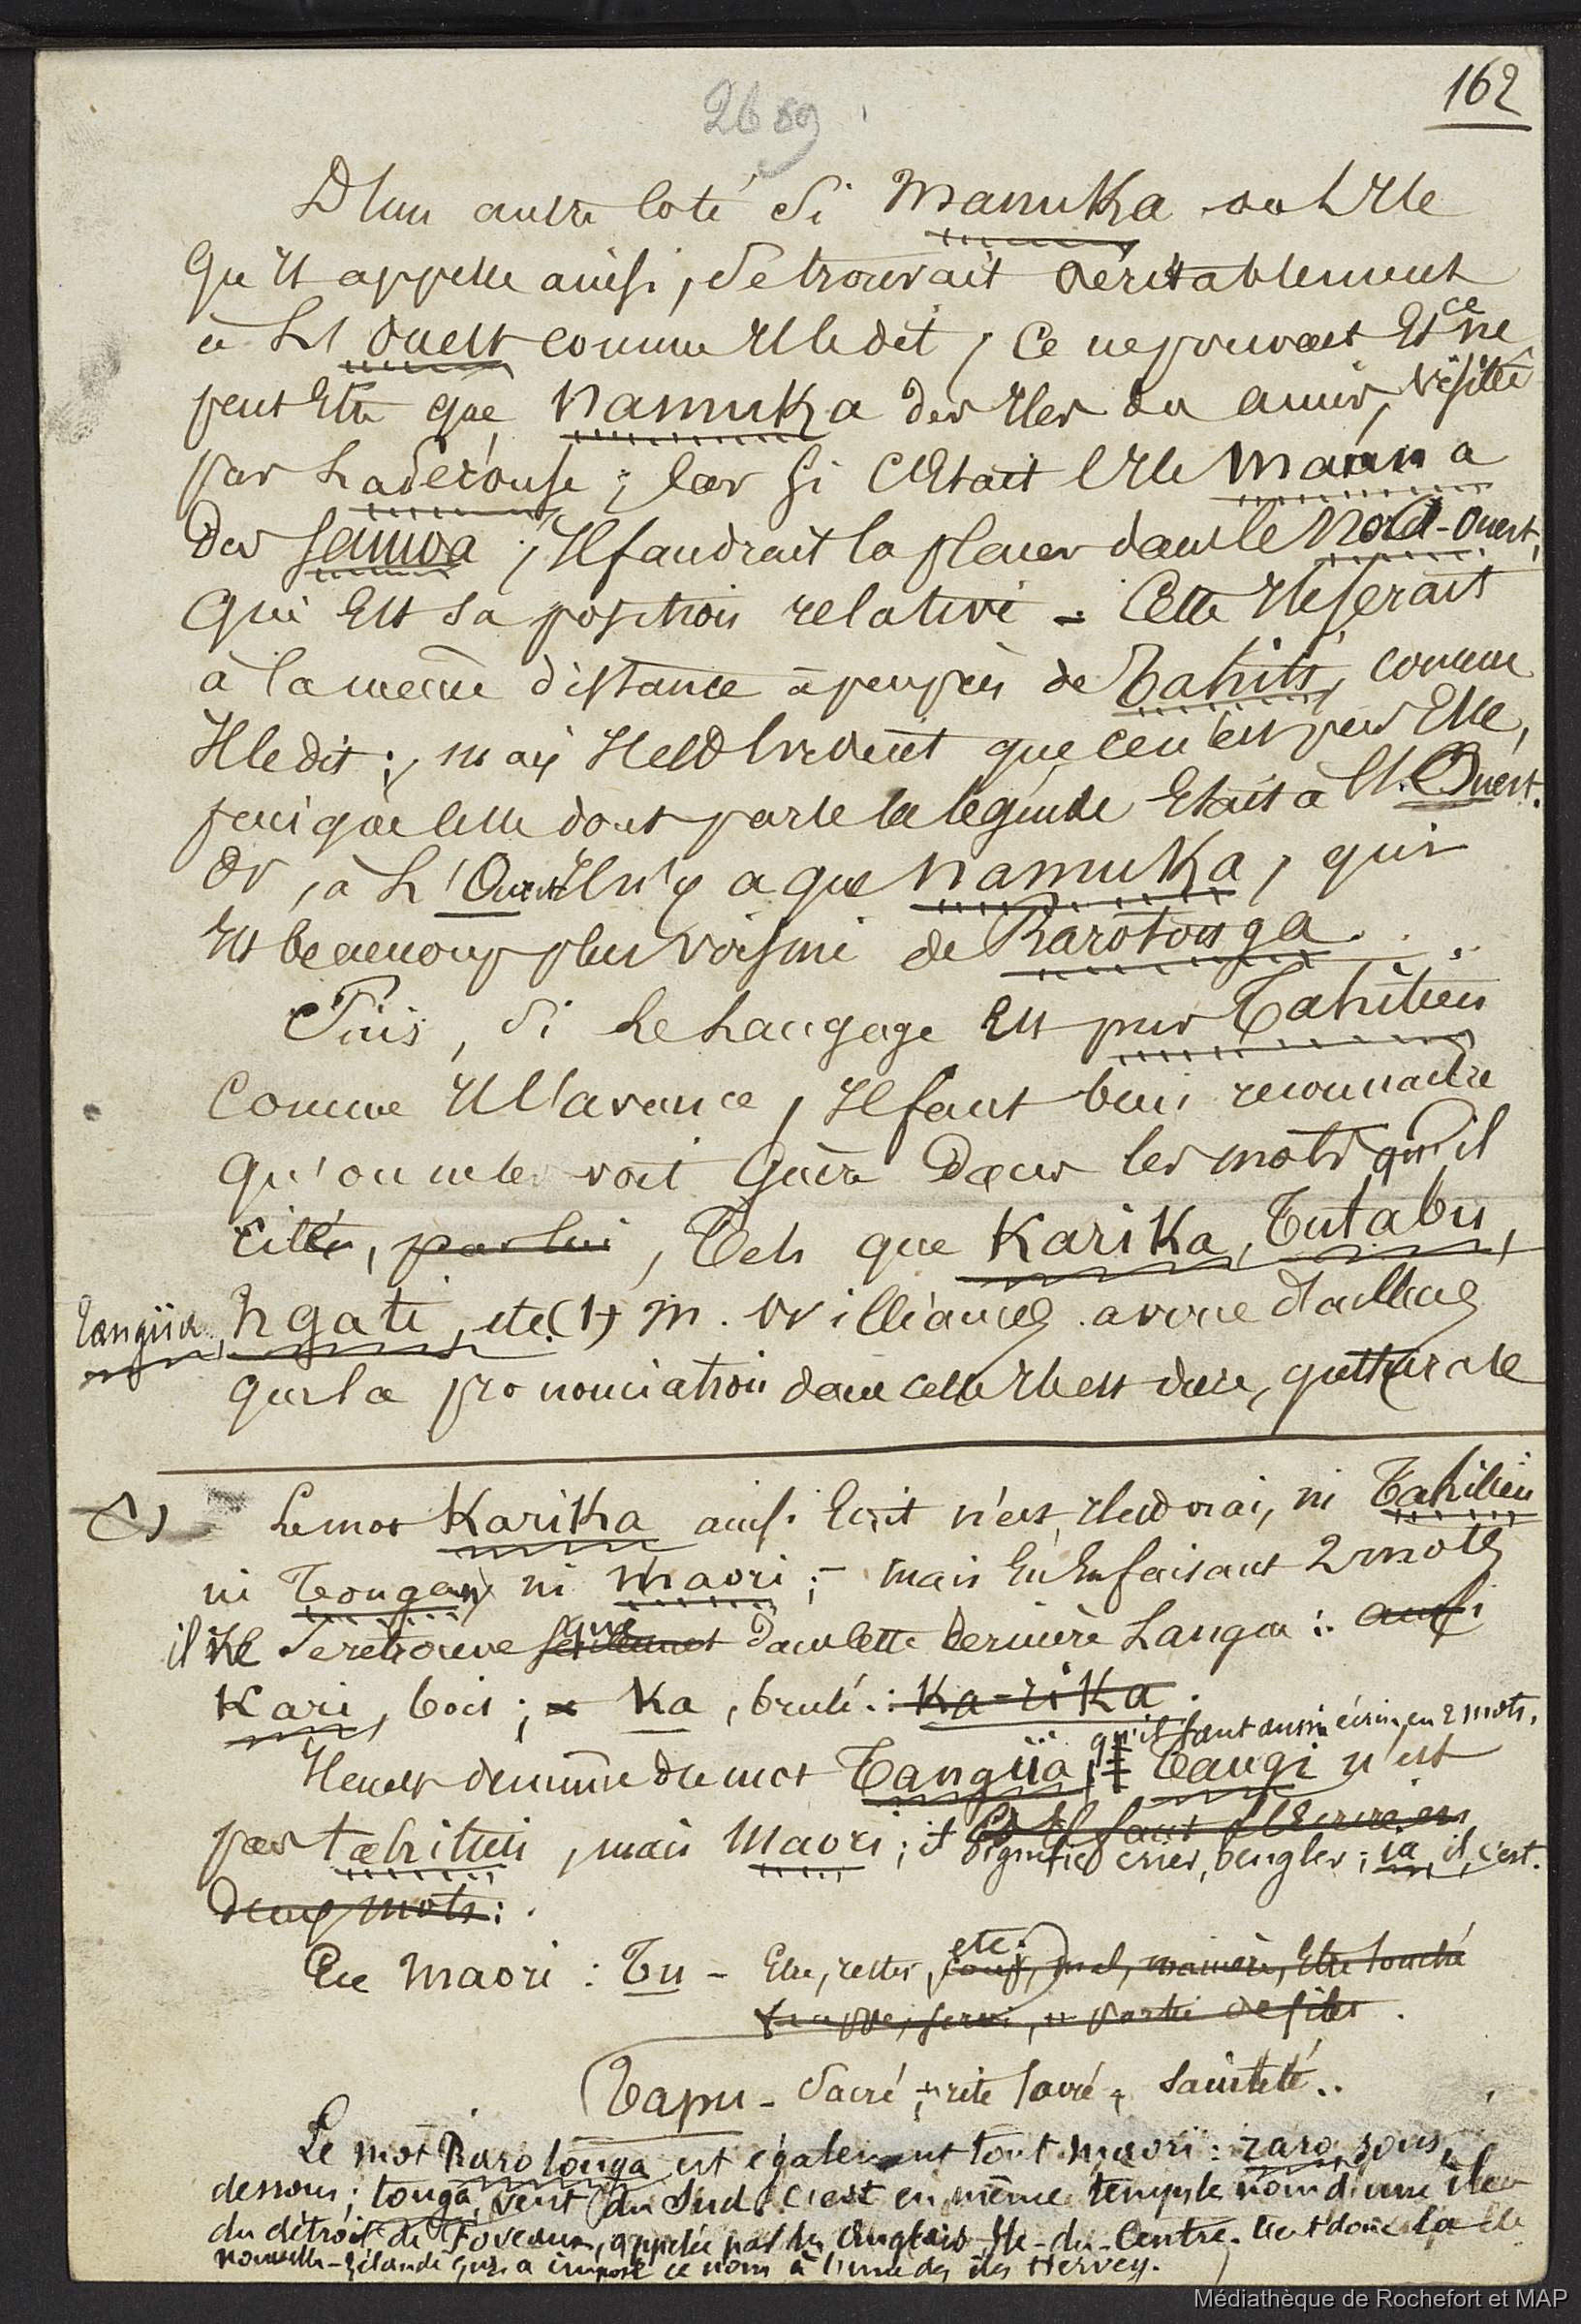 162
2689
D'un autre coté si Manuka ou l'ile
qu'il appelle ainsi, se trouvait véritablement
à l'Ouest comme il le dit, ce ne pouvait et ce ne
peut etre que Namuka des iles des amis, visitée
par Laperouse ; car si c'etait l'ile Manua
des Samoa ; il faudrait la placer dans le Nord-Ouest,
qui est sa position relative. Cette ile serait
à la meme distance à peu près de Tahiti, comme
il le dit ; mais il est evident que ce n'est pas elle,
puisque celle dont parle la légende etait à l'Ouest.
Or, à l'Ouest il n'y a que Namuka, qui
est beaucoup plus voisine de Rarotonga.
Puis, si le langage est pur Tahitien
comme il l'avance, il faut bien reconnaitre
qu'on ne le voit guère dans les mots qu'il
cite, par lui, tels que Karika, Tutabu,
Tangiia, Ngati, etc.(1) M. Williams avoue d'ailleurs
que la prononciation dans cette ile est dure, gutturale
(1) Le mot Karika ainsi écrit n'est, il est vrai, ni Tahitien
ni Tongan, ni Maori ; mais en en faisant 2 mots
il se retrouve que seulement dans cette dernière langue : ainsi
Kari, bois ; Ka, brulé : Ka-rika.
Il en est de meme du mot Tangiia, qu'il faut aussi écrire en 2 mots.
Tangi n'est
pas tahitien, mais Maori ; il signifie crier, beugler ; ia, il, c'est.
il faut l'écrire en
deux mots :
En Maori : Tu - Etre, rester, etc. coup, mal, manière, etre touché
frappé, servi, partie de filet.
Tapu - Sacré, rite sacré, sainteté.
Le mot Rarotonga est également tout Maori : raro, sous,
dessous ; tonga, vent du Sud. C'est en même temps le nom d'une île
du détroit de Foveaux, appelée par les Anglais Ile-du-Centre. C'est donc la
nouvelle-Zélande qui a imposé ce nom à l'une des iles Hervey.
Médiathèque de Rochefort et MAP